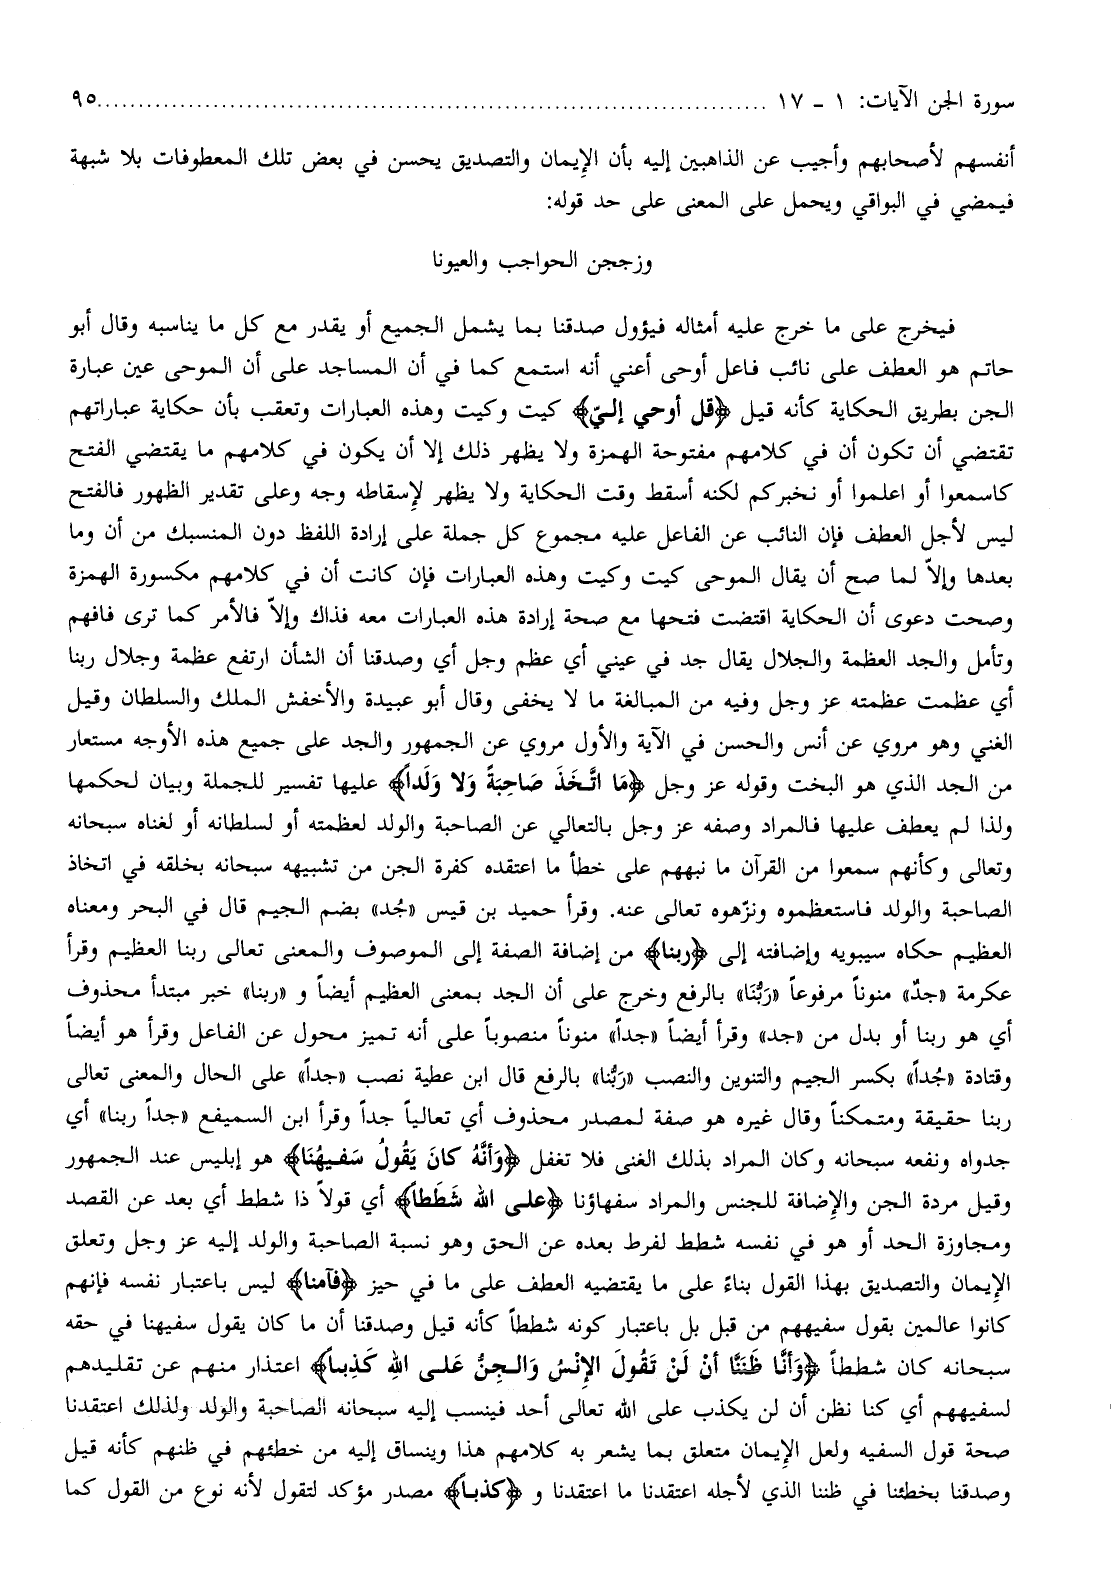 سورة الجن الآيات: ١ - ١٧ .................................................................................................... ٩٥
أنفسهم لأصحابهم وأجيب عن الذاهبين إليه بأن الإيمان والتصديق يحسن في بعض تلك المعطوفات بلا شبهة
فيمضي في البواقي ويحمل على المعنى على حد قوله:
وزججن الحواجب والعيونا
فيخرج على ما خرج عليه أمثاله فيؤول صدقنا بما يشمل الجميع أو يقدر مع كل ما يناسبه وقال أبو
حاتم هو العطف على نائب فاعل أوحى أعني أنه استمع كما في أن المساجد على أن الموحى عين عبارة
الجن بطريق الحكاية كأنه قيل ﴿قل أوحي إليّ﴾ كيت وكيت وهذه العبارات وتعقب بأن حكاية عباراتهم
تقتضي أن تكون أن في كلامهم مفتوحة الهمزة ولا يظهر ذلك إلا أن يكون في كلامهم ما يقتضي الفتح
كاسمعوا أو اعلموا أو نخبركم لكنه أسقط وقت الحكاية ولا يظهر لإسقاطه وجه وعلى تقدير الظهور فالفتح
ليس لأجل العطف فإن النائب عن الفاعل عليه مجموع كل جملة على إرادة اللفظ دون المنسبك من أن وما
بعدها وإلاّ لما صح أن يقال الموحى كيت وكيت وهذه العبارات فإن كانت أن في كلامهم مكسورة الهمزة
وصحت دعوى أن الحكاية اقتضت فتحها مع صحة إرادة هذه العبارات معه فذاك وإلاّ فالأمر كما ترى فافهم
وتأمل والجد العظمة والجلال يقال جد في عيني أي عظم وجل أي وصدقنا أن الشأن ارتفع عظمة وجلال ربنا
أي عظمت عظمته عز وجل وفيه من المبالغة ما لا يخفى وقال أبو عبيدة والأخفش الملك والسلطان وقيل
الغني وهو مروي عن أنس والحسن في الآية والأول مروي عن الجمهور والجد على جميع هذه الأوجه مستعار
من الجد الذي هو البخت وقوله عز وجل ﴿مَا اتَّخَذَ صَاحِبَةً وَلا وَلَداً﴾ عليها تفسير للجملة وبيان لحكمها
ولذا لم يعطف عليها فالمراد وصفه عز وجل بالتعالي عن الصاحبة والولد لعظمته أو لسلطانه أو لغناه سبحانه
وتعالى وكأنهم سمعوا من القرآن ما نبههم على خطأ ما اعتقده كفرة الجن من تشبيهه سبحانه بخلقه في اتخاذ
الصاحبة والولد فاستعظموه ونزّهوه تعالى عنه. وقرأ حميد بن قيس «جُد» بضم الجيم قال في البحر ومعناه
العظيم حكاه سيبويه وإضافته إلى ﴿ربنا﴾ من إضافة الصفة إلى الموصوف والمعنى تعالى ربنا العظيم وقرأ
عكرمة «جدٌ» منوناً مرفوعاً «رَبُّنَا» بالرفع وخرج على أن الجد بمعنى العظيم أيضاً و «ربنا» خبر مبتدأ محذوف
أي هو ربنا أو بدل من «جد» وقرأ أيضاً «جداً» منوناً منصوباً على أنه تميز محول عن الفاعل وقرأ هو أيضاً
وقتادة «جُداً» بكسر الجيم والتنوين والنصب «رَبُّنا» بالرفع قال ابن عطية نصب «جداً» على الحال والمعنى تعالى
ربنا حقيقة ومتمكناً وقال غيره هو صفة لمصدر محذوف أي تعالياً جداً وقرأ ابن السميفع «جداً ربنا» أي
جدواه ونفعه سبحانه وكان المراد بذلك الغنى فلا تغفل ﴿وَأَنَّهُ كانَ يَقُولُ سَفيهُنَا﴾ هو إبليس عند الجمهور
وقيل مردة الجن والإضافة للجنس والمراد سفهاؤنا ﴿على الله شَطَطاً﴾ أي قولاً ذا شطط أي بعد عن القصد
ومجاوزة الحد أو هو في نفسه شطط لفرط بعده عن الحق وهو نسبة الصاحبة والولد إليه عز وجل وتعلق
الإيمان والتصديق بهذا القول بناءً على ما يقتضيه العطف على ما في حيز ﴿فآمنا﴾ ليس باعتبار نفسه فإنهم
كانوا عالمين بقول سفيههم من قبل بل باعتبار كونه شططاً كأنه قيل وصدقنا أن ما كان يقول سفيهنا في حقه
سبحانه كان شططاً ﴿وَأنَّا ظَنَنَّا أنْ لَنْ تَقُولَ الإنْسُ وَالجِنُّ عَلى اللهِ كَذِباً﴾ اعتذار منهم عن تقليدهم
لسفيههم أي كنا نظن أن لن يكذب على الله تعالى أحد فينسب إليه سبحانه الصاحبة والولد ولذلك اعتقدنا
صحة قول السفيه ولعل الإيمان متعلق بما يشعر به كلامهم هذا وينساق إليه من خطئهم في ظنهم كأنه قيل
وصدقنا بخطئنا في ظننا الذي لأجله اعتقدنا ما اعتقدنا و ﴿كذباً﴾ مصدر مؤكد لتقول لأنه نوع من القول كما